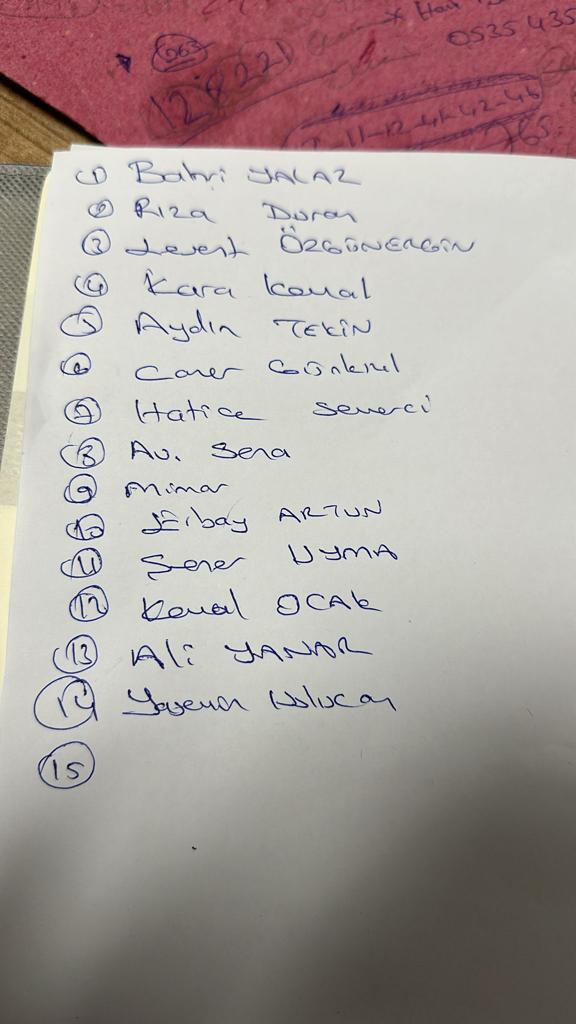 063
128221
0535 435
11-12-41-42-46
1 Bahri YALAZ
2 Rıza Duran
3 Levent ÖZGÜNERGİN
4 Kara Kemal
5 Aydın TEKİN
6 Caner
7 Hatice Severci
8 Av. Sena
9 Mimar
10 ARTUN
11 Şener UYMA
12 Kemal OCAK
13 Ali YANAR
14 Yasemin Ulucan
15